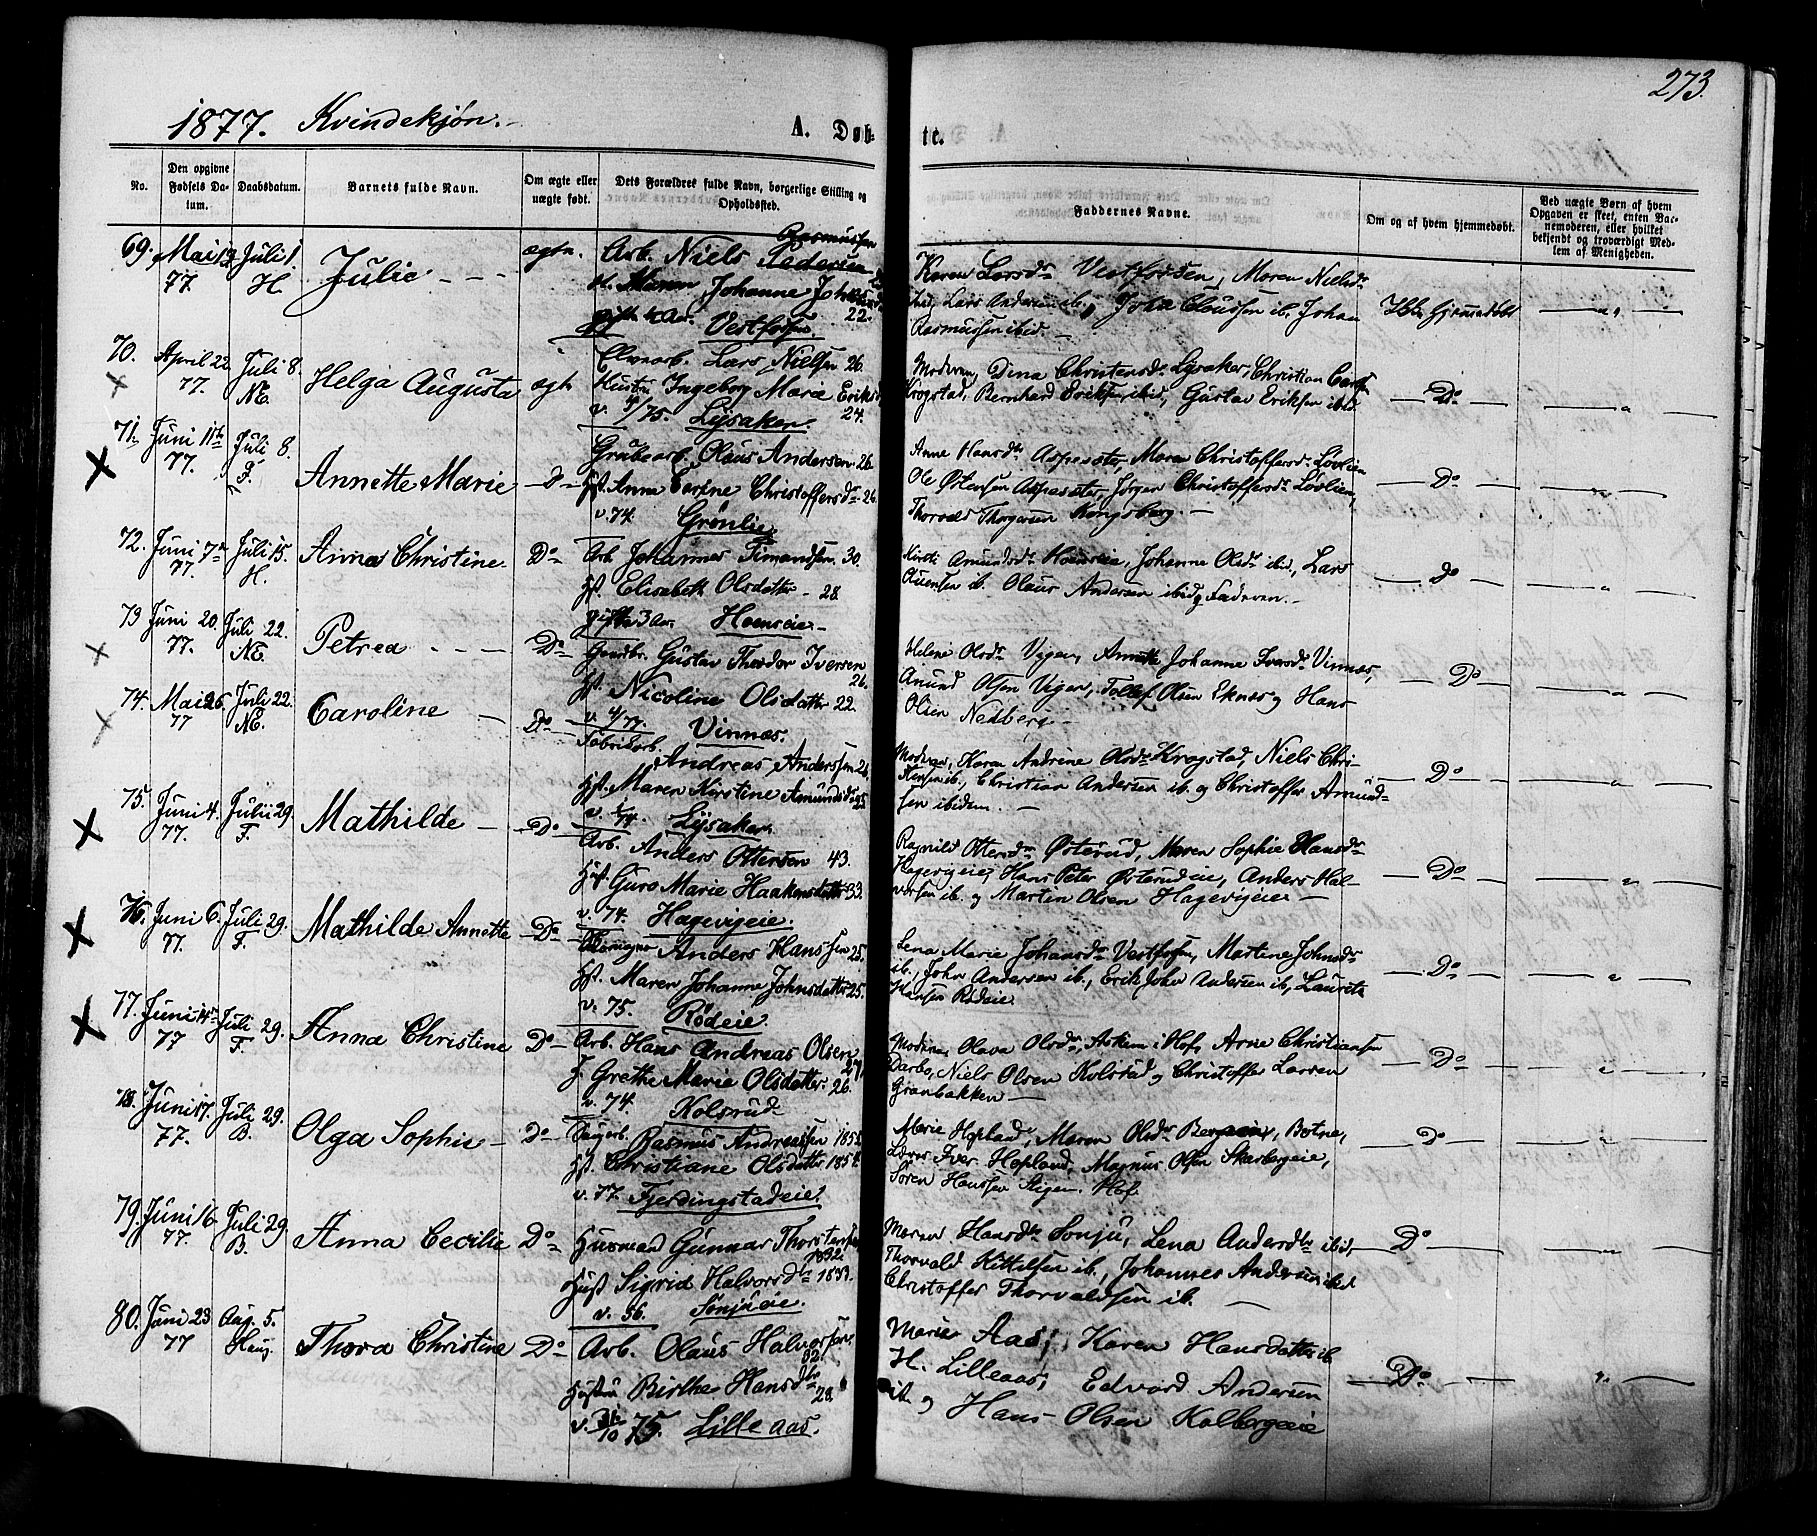 273.
1877. Kvindekjøn.
A. Døbte.
No.
Den opgivne Fødsels Datum.
Daabsdatum.
Barnets fulde Navn.
Om ægte eller uægte født.
Dets Forældres fulde Navn, borgerlige Stilling og Opholdssted.
Faddernes Navne.
Om og af hvem hjemmedøbt.
Ved uægte Børn af hvem Opgaven er skeet, enten Barnemoderen, eller hvilket bekjendt og troværdigt Medlem af Menigheden.
69. Mai 19 77. Juli 1. H. Julie ægte.
Arb. Niels Pedersen Rasmussen
Maren Johanne
22.
gift 4 Aar. Vestfossen
Karen Larsdr Vestfossen, Maren Nielsdr
ibid, Lars Andersen ib., John Clausen ib. Johan
Rasmussen ibid.
Ikke hjemmedøbt
70. April 22 77. Juli 8. NE. Helga Augusta ægte
Elvearb. Lars Nielsen 26.
Hustru Ingeborg Marie Eriksd
v. /75. Lysaker. 24.
Moderen, Dina Christensdr Lysaker, Christian
Krogstad, Bernhard Eriksen ibid, Gustav Eriksen ibid.
Do
71. Juni 11te 77. Juli 8. F. Annette Marie D
Grubearb. Olaus Andersen 26
Hst. Anne Christoffersdr 26.
v. 74. Grønlie
Anne Hansdtr Aspesæter Maren Christoffersd. Løvlien
Ole Østensen Aspesæter, Jørgen Christoffersdr Løvlien,
Thorvald Thorgersen Kongsberg.
Do
72. Juni 7de 77. Juli 15. H. Anna Christine Do
Arb Johannes Simondsen 30.
Hst. Elisabeth Olsdatter 28.
gift 3 Aar. Hoenseie
Kirsti Amundsdr Hoenseie, Johanne Olsdr ibid., Lars
ib. Olaus Andersen ibid og Faderen.
Do
73 Juni 20. 77. Juli 22. NE. Petrea Do
Gaardbr. Gustav Theodor Iversen
26.
Hst. Nicoline Olsdatter 22.
v. 4/77. Vinnæs.
Helene Olsdr Vegen, Annette Johanne Iversdr Vinnæs,
Amund Olsen Vegen, Tollef Olsen Eknes og Hans
Olsen Nedberg
Do
74. Mai 26. 77 Juli 22. NE. Caroline Do
Fabrikarb.
Andreas Anderssen 26
Hst. Maren Kirstine Amundsdr 25.
v. /74. Lysaker.
Moderen, Karen Andrine Olsdr Krogstad, Niels Chri-
stensen ib., Christian Andersen ib. og Christoffer Amund-
sen ibidem.
Do
75. Juni 4. 77. Juli 29. F. Mathilde Do
Arb. Anders Ottersen 43.
Hst. Guro Marie Haakensdatter 33.
v. 74. Hagevigeie.
Ragnild Ottersdr Østerud, Maren Sophie Hansdr
Hagevigeie, Hans Peter Østerudeie, Anders Hal-
vorsen ib. og Martin Olsen Hagevigeie
Do
76. Juni 6. 77. Juli 29. F. Mathilde Annette Do
Anders Hanssen 25.
Hst. Maren Johanne Johnsdatter 25.
v. 75. Rødeie.
Lena Marie Johansdr Vestfossen, Martine Johnsdr
ib., John Andersen ib., Erik John Andersen ib, Laurits
Hansen Rødeie
Do
77. Juni 14de 77 Juli 29. F. Anna Christine Do
Arb. Hans Andreas Olsen
27
H. Grethe Marie Olsdatter 26.
v. 74. Kolsrud
Moderen, Olava Olsdr, Askem i Hof, Arne Christiansen
Darbo, Niels Olsen Kolsrud og Christoffer Larsen
Granbakken
Do
78. Juni 17. 77. Juli 29. B. Olga Sophie Do
Sagarb. Rasmus Andreassen 185
Hst. Christiane Olsdatter 1854.
v. 77. Fjerdingstadeie.
Marie Hopland, Maren Olsdr Bergseie, Botne,
Lærer Iver Hopland, Magnus Olsen Skarbergeie,
Søren Hanssen Stigen. Hof.
Do
79. Juni 16. 77. Juli 29. B. Anna Cecilie Do
Husmand Gunnar Thorstensen
1832
Hust Sigrid Halvorsdtr 1833.
v. 56. Sønjueie.
Maren Hansdtr Sønju, Lena Andersdtr ibid,
Thorvald Kittelsen ib., Johannes Andersen ibid
Christoffer Thorvaldsen ib.
Do
80. Juni 23 77 Aug. 5. Haug. Thora Christine Do
Arb. Olaus Halvorsen
32.
Hustru Birthe Hansdtr
28
v. /10 75. Lille aas.
Marie Aas, Karen Hansdatter ib
H. Lilleaas, Edvard Andersen
ib og Hans Olsen Kolbergeie
Do